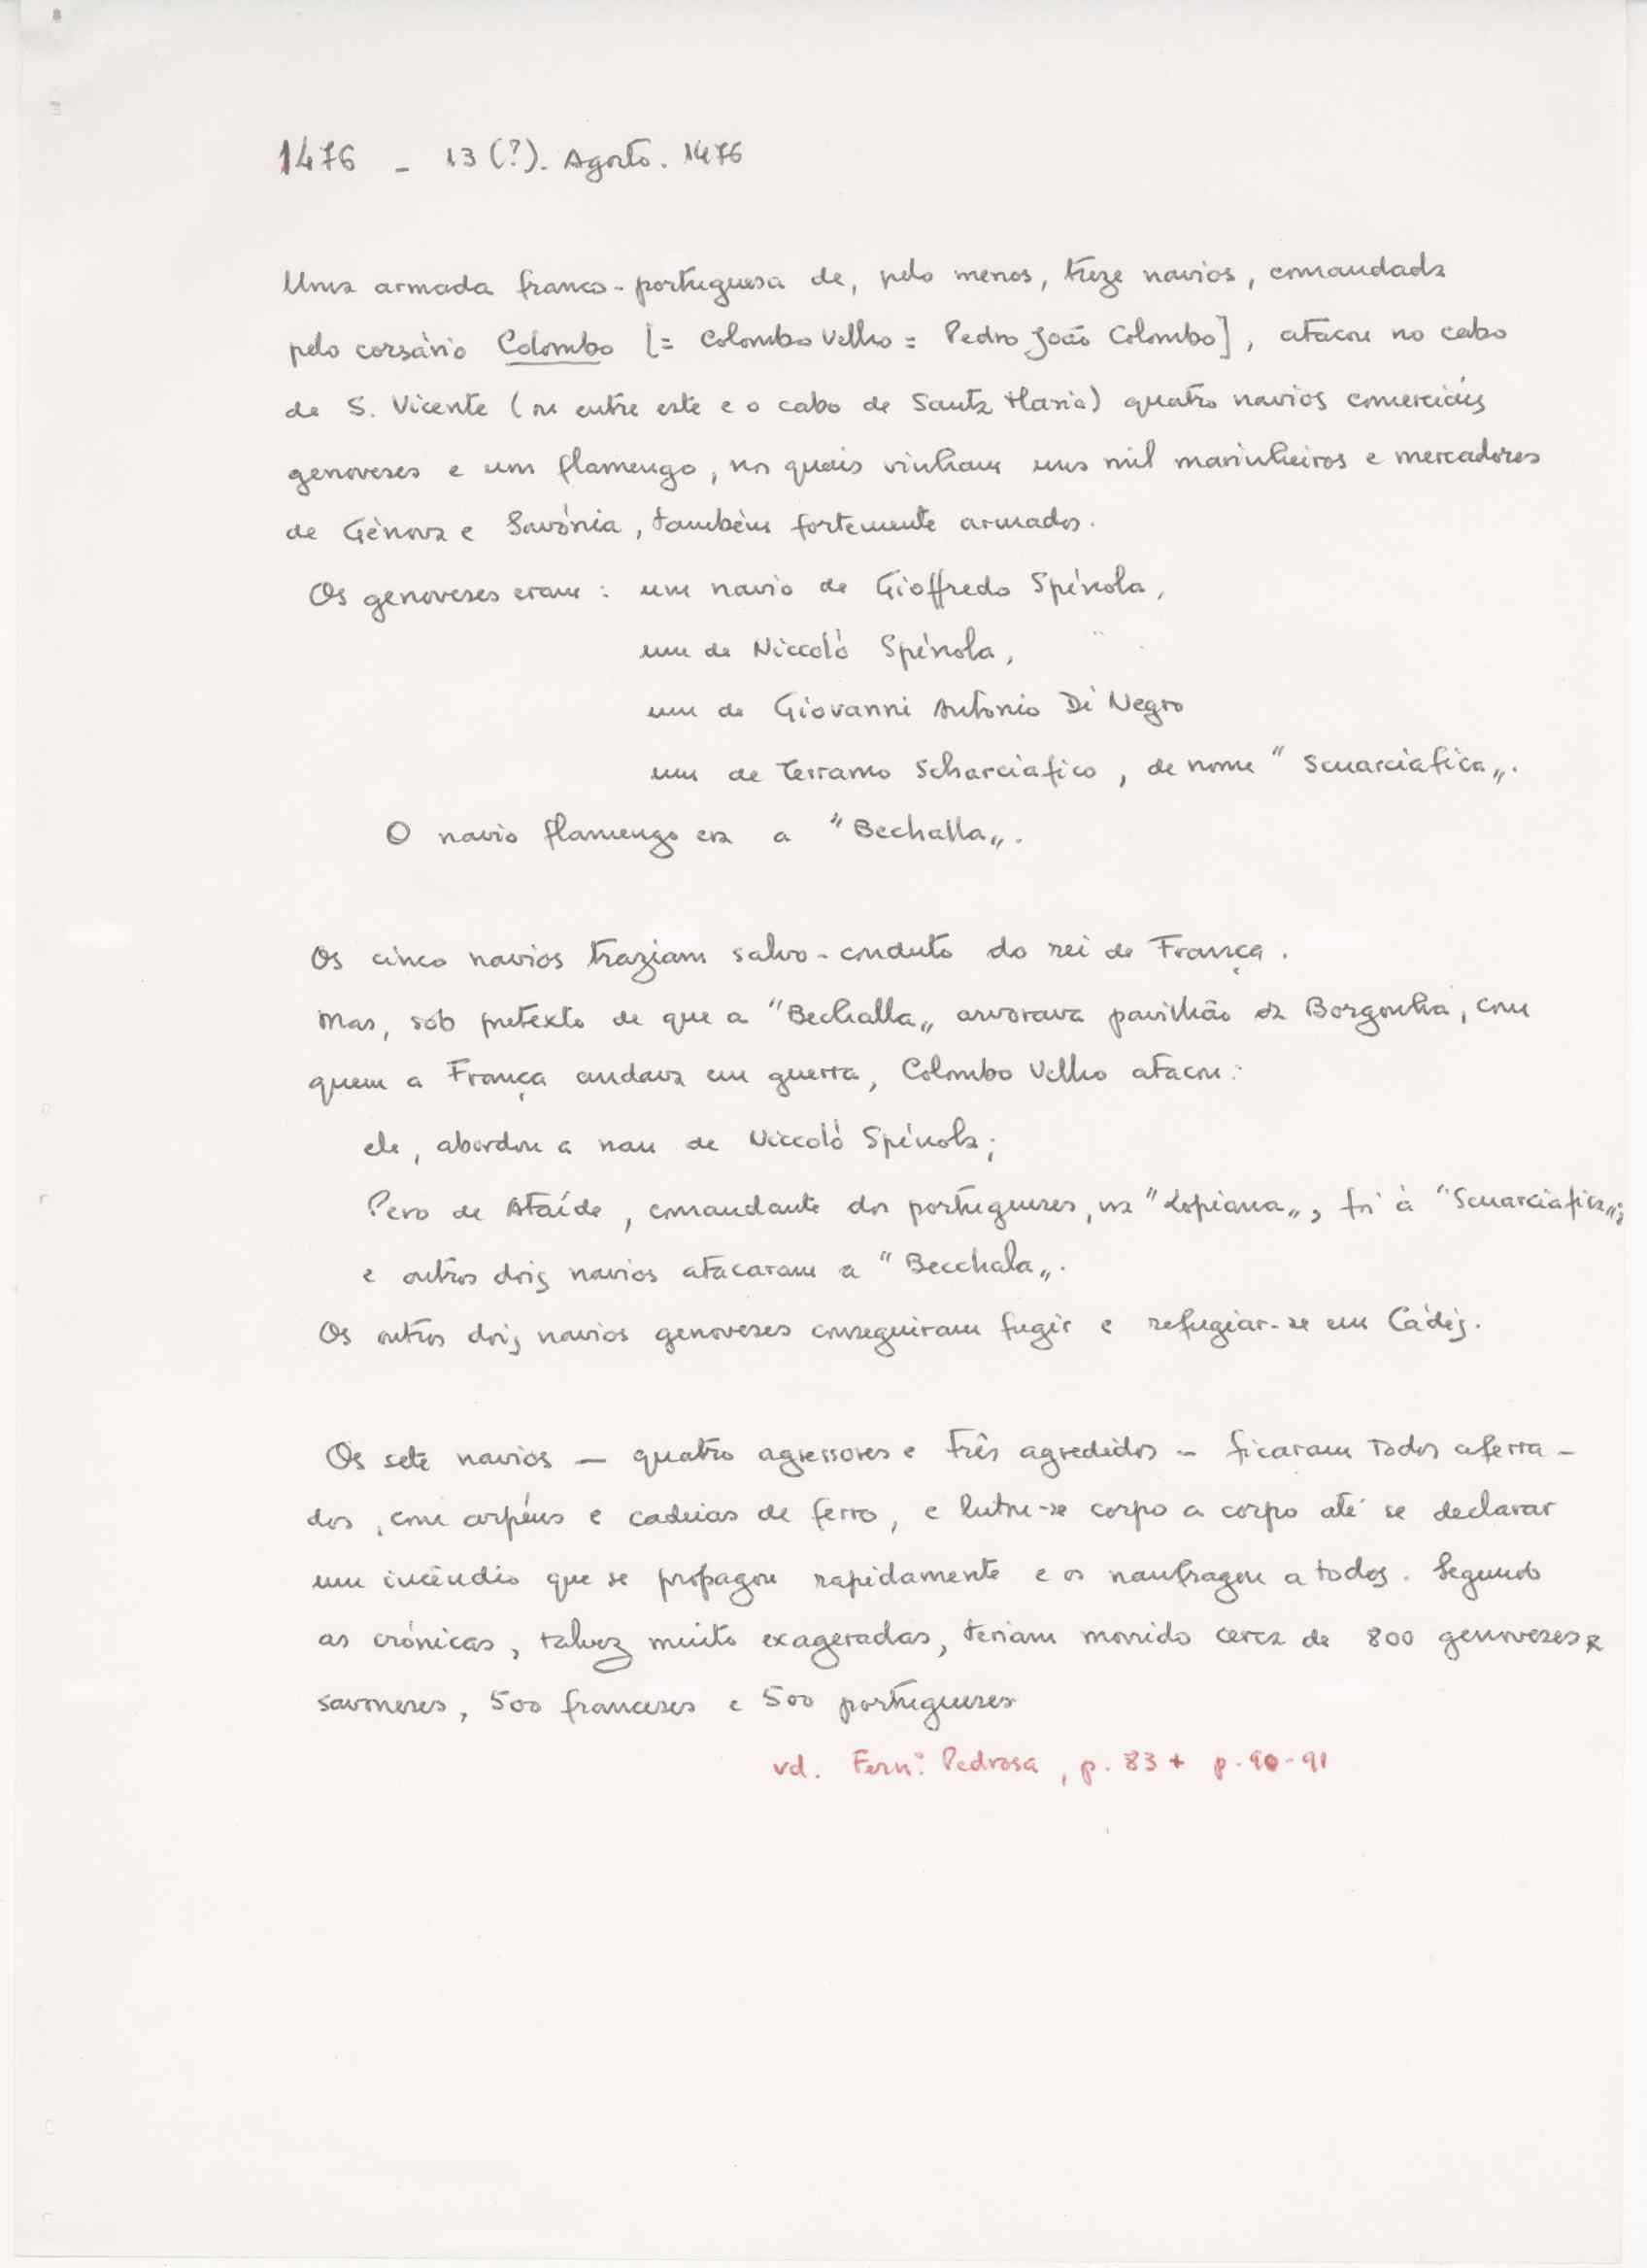 1476 - 13 (?). Agosto. 1476
Uma armada franco-portuguesa de, pelo menos, treze navios, comandada
pelo corsário Colombo [= Colombo Velho = Pedro João Colombo], atacou no cabo
de S. Vicente (ou entre este e o cabo de Santa Maria) quatro navios comerciais
genoveses e um flamengo, nos quais vinham uns mil marinheiros e mercadores
de Génova e Savónia, também fortemente armados.
Os genoveses eram: um navio de Gioffredo Spínola,
um de Niccoló Spínola,
um de Giovanni Antonio Di Negro
um de Terramo Scharciafico, de nome "Scuarciafica".
O navio flamengo era a "Bechalla".
Os cinco navios traziam salvo-conduto do rei de França.
Mas, sob pretexto de que a "Bechalla" arvorava pavilhão da Borgonha, com
quem a França andava em guerra, Colombo Velho atacou:
ele, abordou a nau de Niccoló Spínola;
Pero de Ataíde, comandante dos portugueses, na "Lopiana", foi à "Scuarciafica";
e outros dois navios atacaram a "Becchala".
Os outros dois navios genoveses conseguiram fugir e refugiar-se em Cádis.
Os sete navios — quatro agressores e três agredidos - ficaram todos aferra-
dos, com arpéus e cadeias de ferro, e lutou-se corpo a corpo até se declarar
um incêndio que se propagou rapidamente e os naufragou a todos. Segundo
as crónicas, talvez muito exageradas, teriam morrido cerca de 800 genoveses e
savoneses, 500 franceses e 500 portugueses
vd. Fernº Pedrosa, p. 83 + p. 90-91